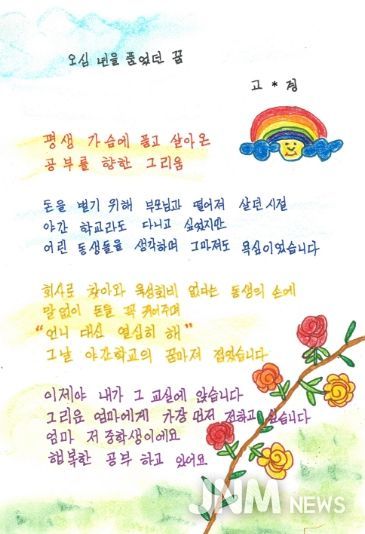 오십 년을 품었던 꿈
고 * 정
평생 가슴에 품고 살아온
공부를 향한 그리움
돈을 벌기 위해 부모님과 떨어져 살던 시절
야간 학교라도 다니고 싶었지만
어린 동생들을 생각하며 그마저도 욕심이었습니다
회사로 찾아와 육성회비 없다는 동생의 손에
말없이 돈을 꼭 쥐어주며
"언니 대신 열심히 해"
그날 야간학교의 꿈마저 접었습니다
이제야 내가 그 교실에 앉습니다
그리운 엄마에게 가장 먼저 전하고 싶습니다
엄마 저 중학생이에요
행복한 공부 하고 있어요
JNM NEWS